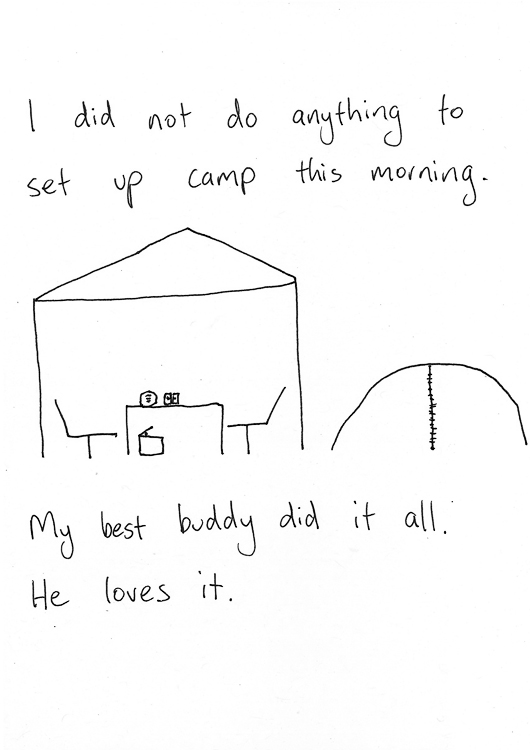 I did not do anything to
set up camp this morning.
My best buddy did it all.
He loves it.